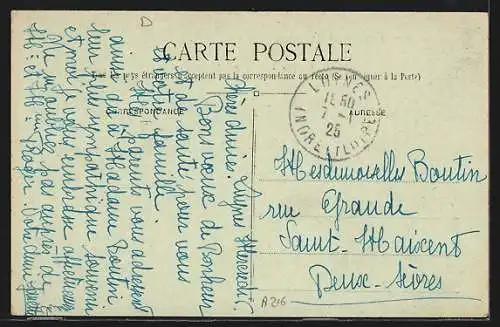 CARTE POSTALE
Tous les pays étrangers n'acceptent pas la correspondance au recto (Se renseigner à la Poste)
CORRESPONDANCE
ADRESSE
LUYNES
15 50
25
INDRE ET LOIRE
Mesdemoiselles Boutin
rue Grande
Saint-Maixent
Deux-Sèvres
A 216
Luynes Mercredi
Chères Amies,
Bons vœux de Bonheur
et de santé pour vous
et votre famille.
Mes parents vous adressent
ainsi qu'à Madame Boutin
leur plus sympathique souvenir
et moi je vous embrasse affectueusement
Ne m'oubliez pas auprès de
Mr et Mme Roger.